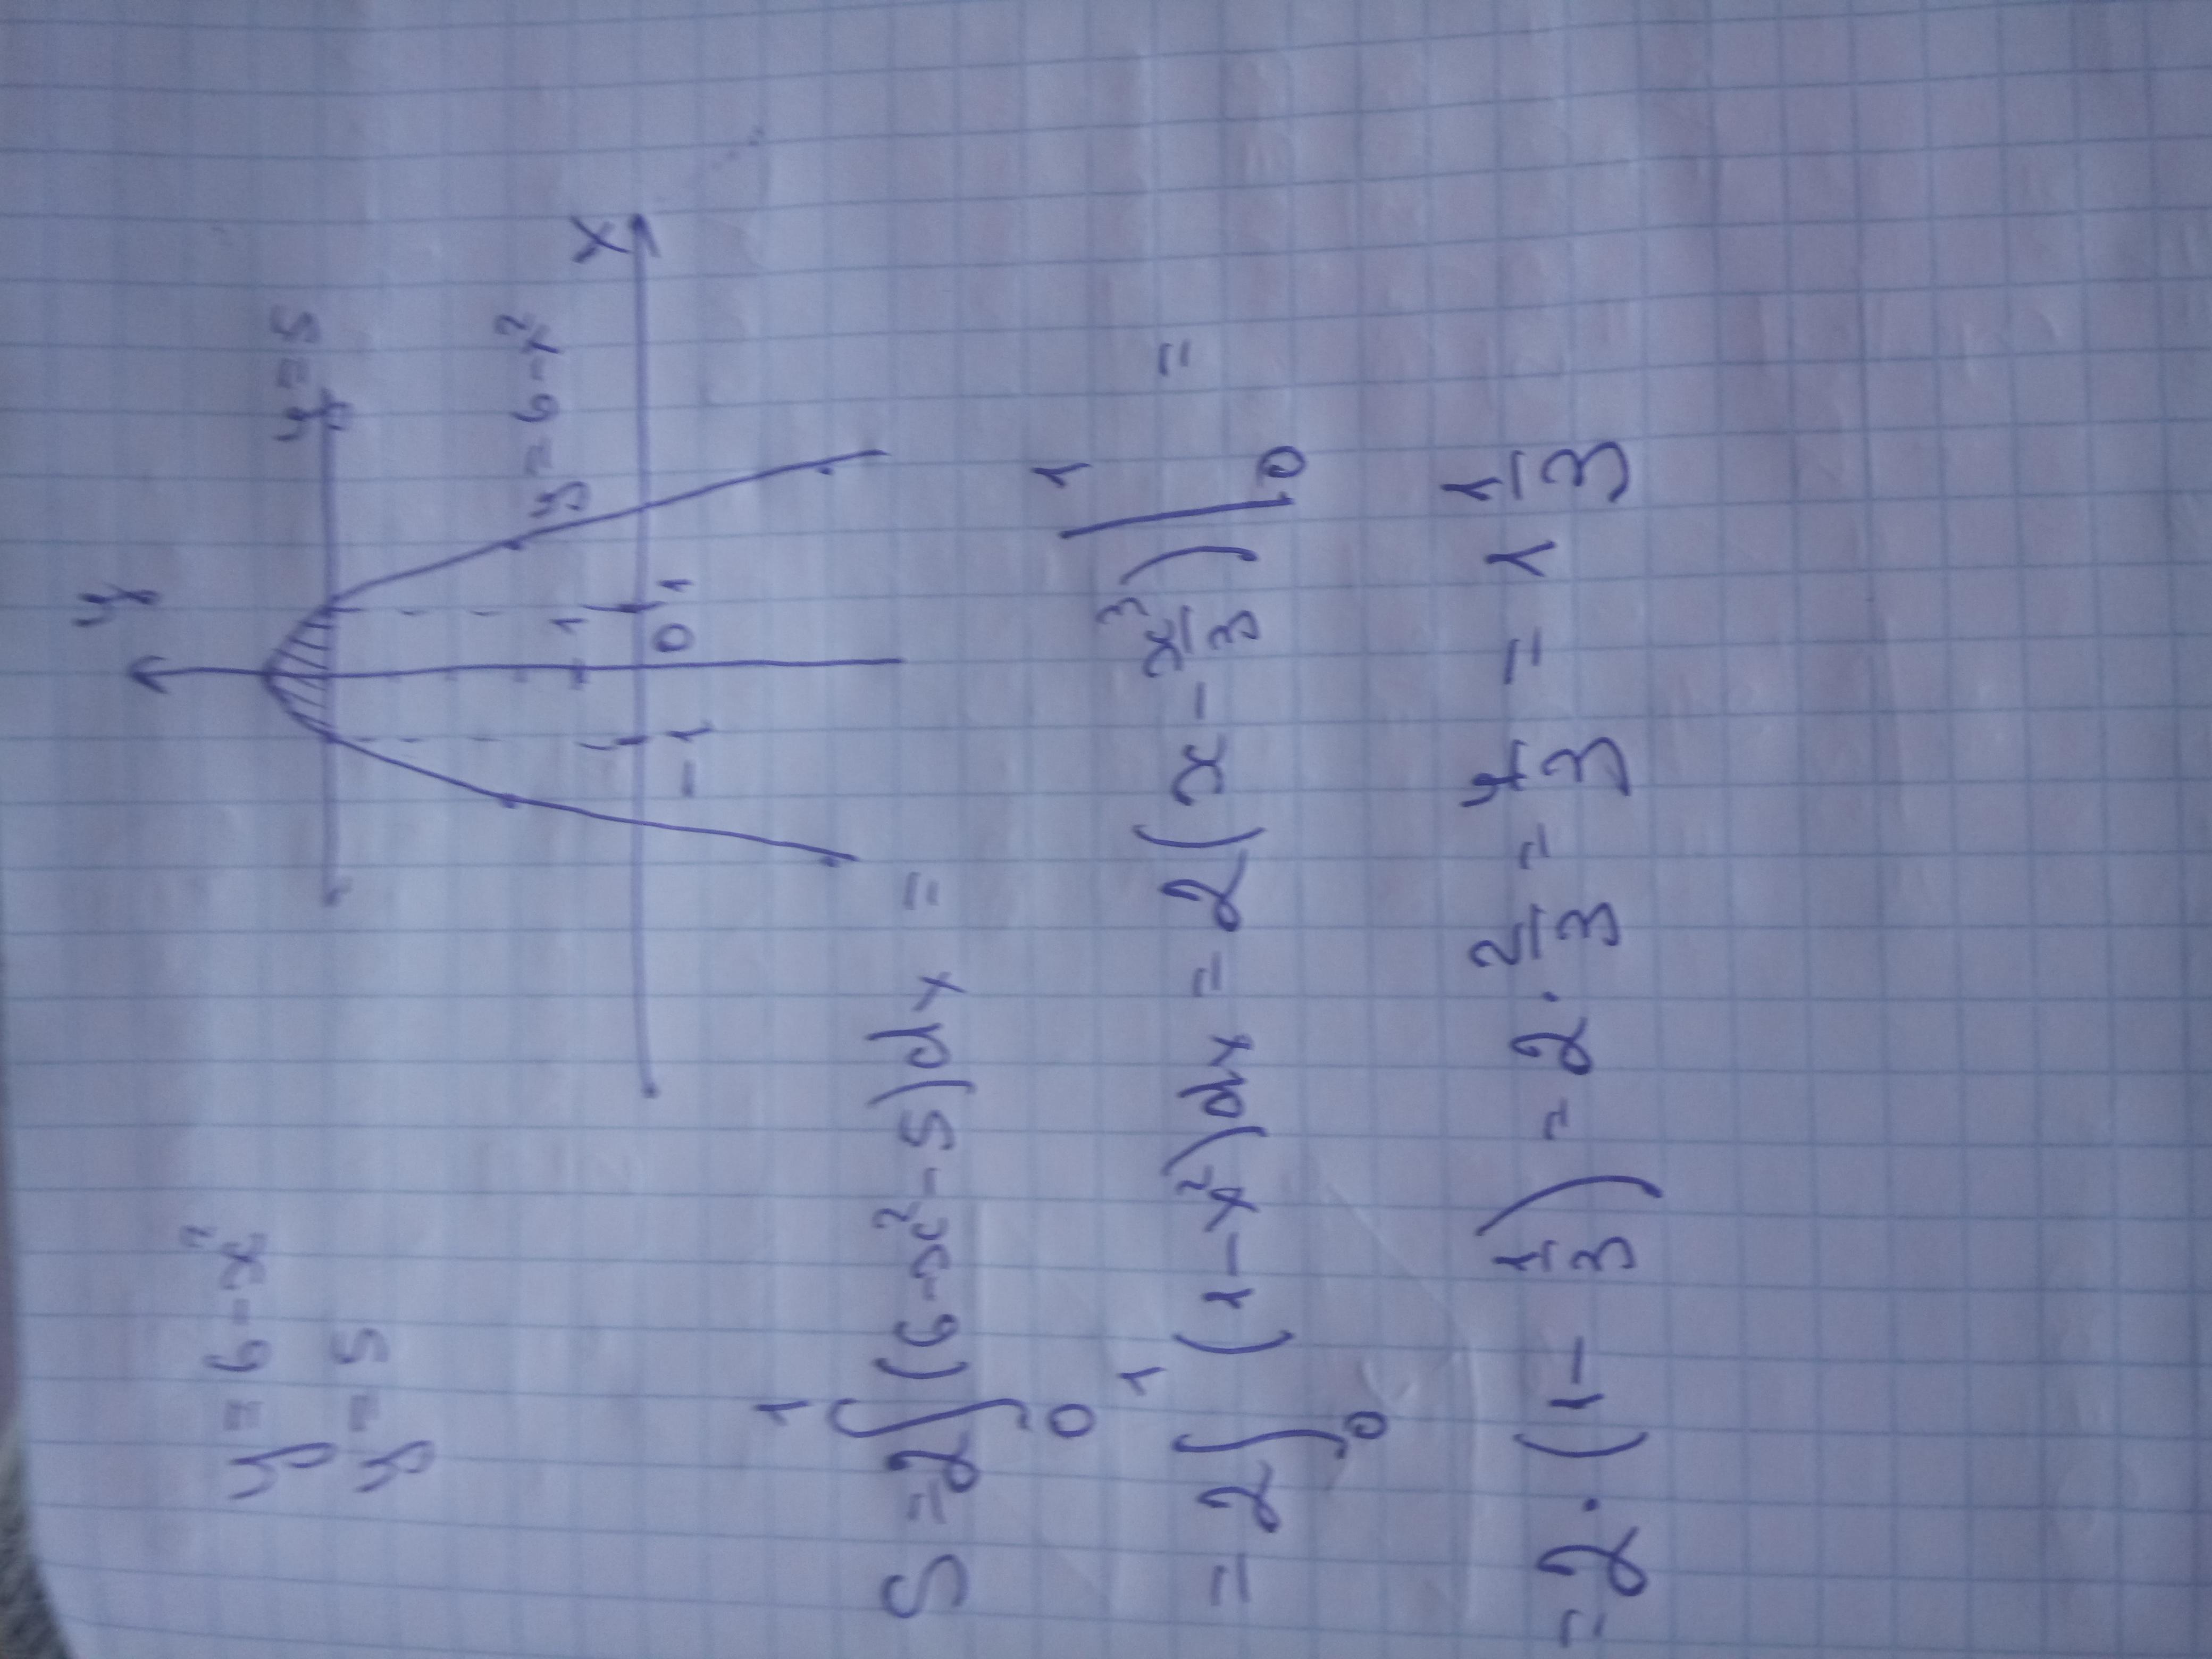 y = 6 - x²
y = 5
y
y = 5
y = 6 - x²
x
1
-1 0 1
S = 2∫₀¹(6 - x² - 5)dx =
= 2∫₀¹(1 - x²)dx = 2(x - x³/3)|₀¹ =
= 2 · (1 - 1/3) = 2 · 2/3 = 4/3 = 1 1/3